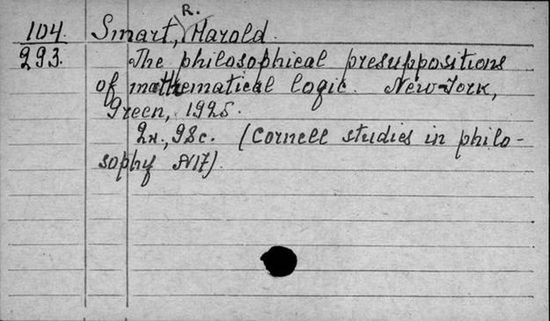 R.
104. Smart, Harold.
293. The philosophical presuppositions
of mathematical logic. New-York,
Green, 1925.
2н., 98с. (Cornell studies in philo-
sophy N17).